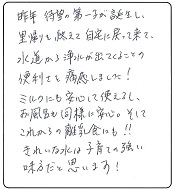 昨年 待望の第一子が誕生し、
里帰りも終えて自宅に戻って来て、
水道から浄水が出てくることの
便利さを痛感しました！
ミルクにも安心して使えるし、
お風呂も同様に安心。そして
これからの離乳食にも!!
きれいな水は子育ての強い
味方だと思います！